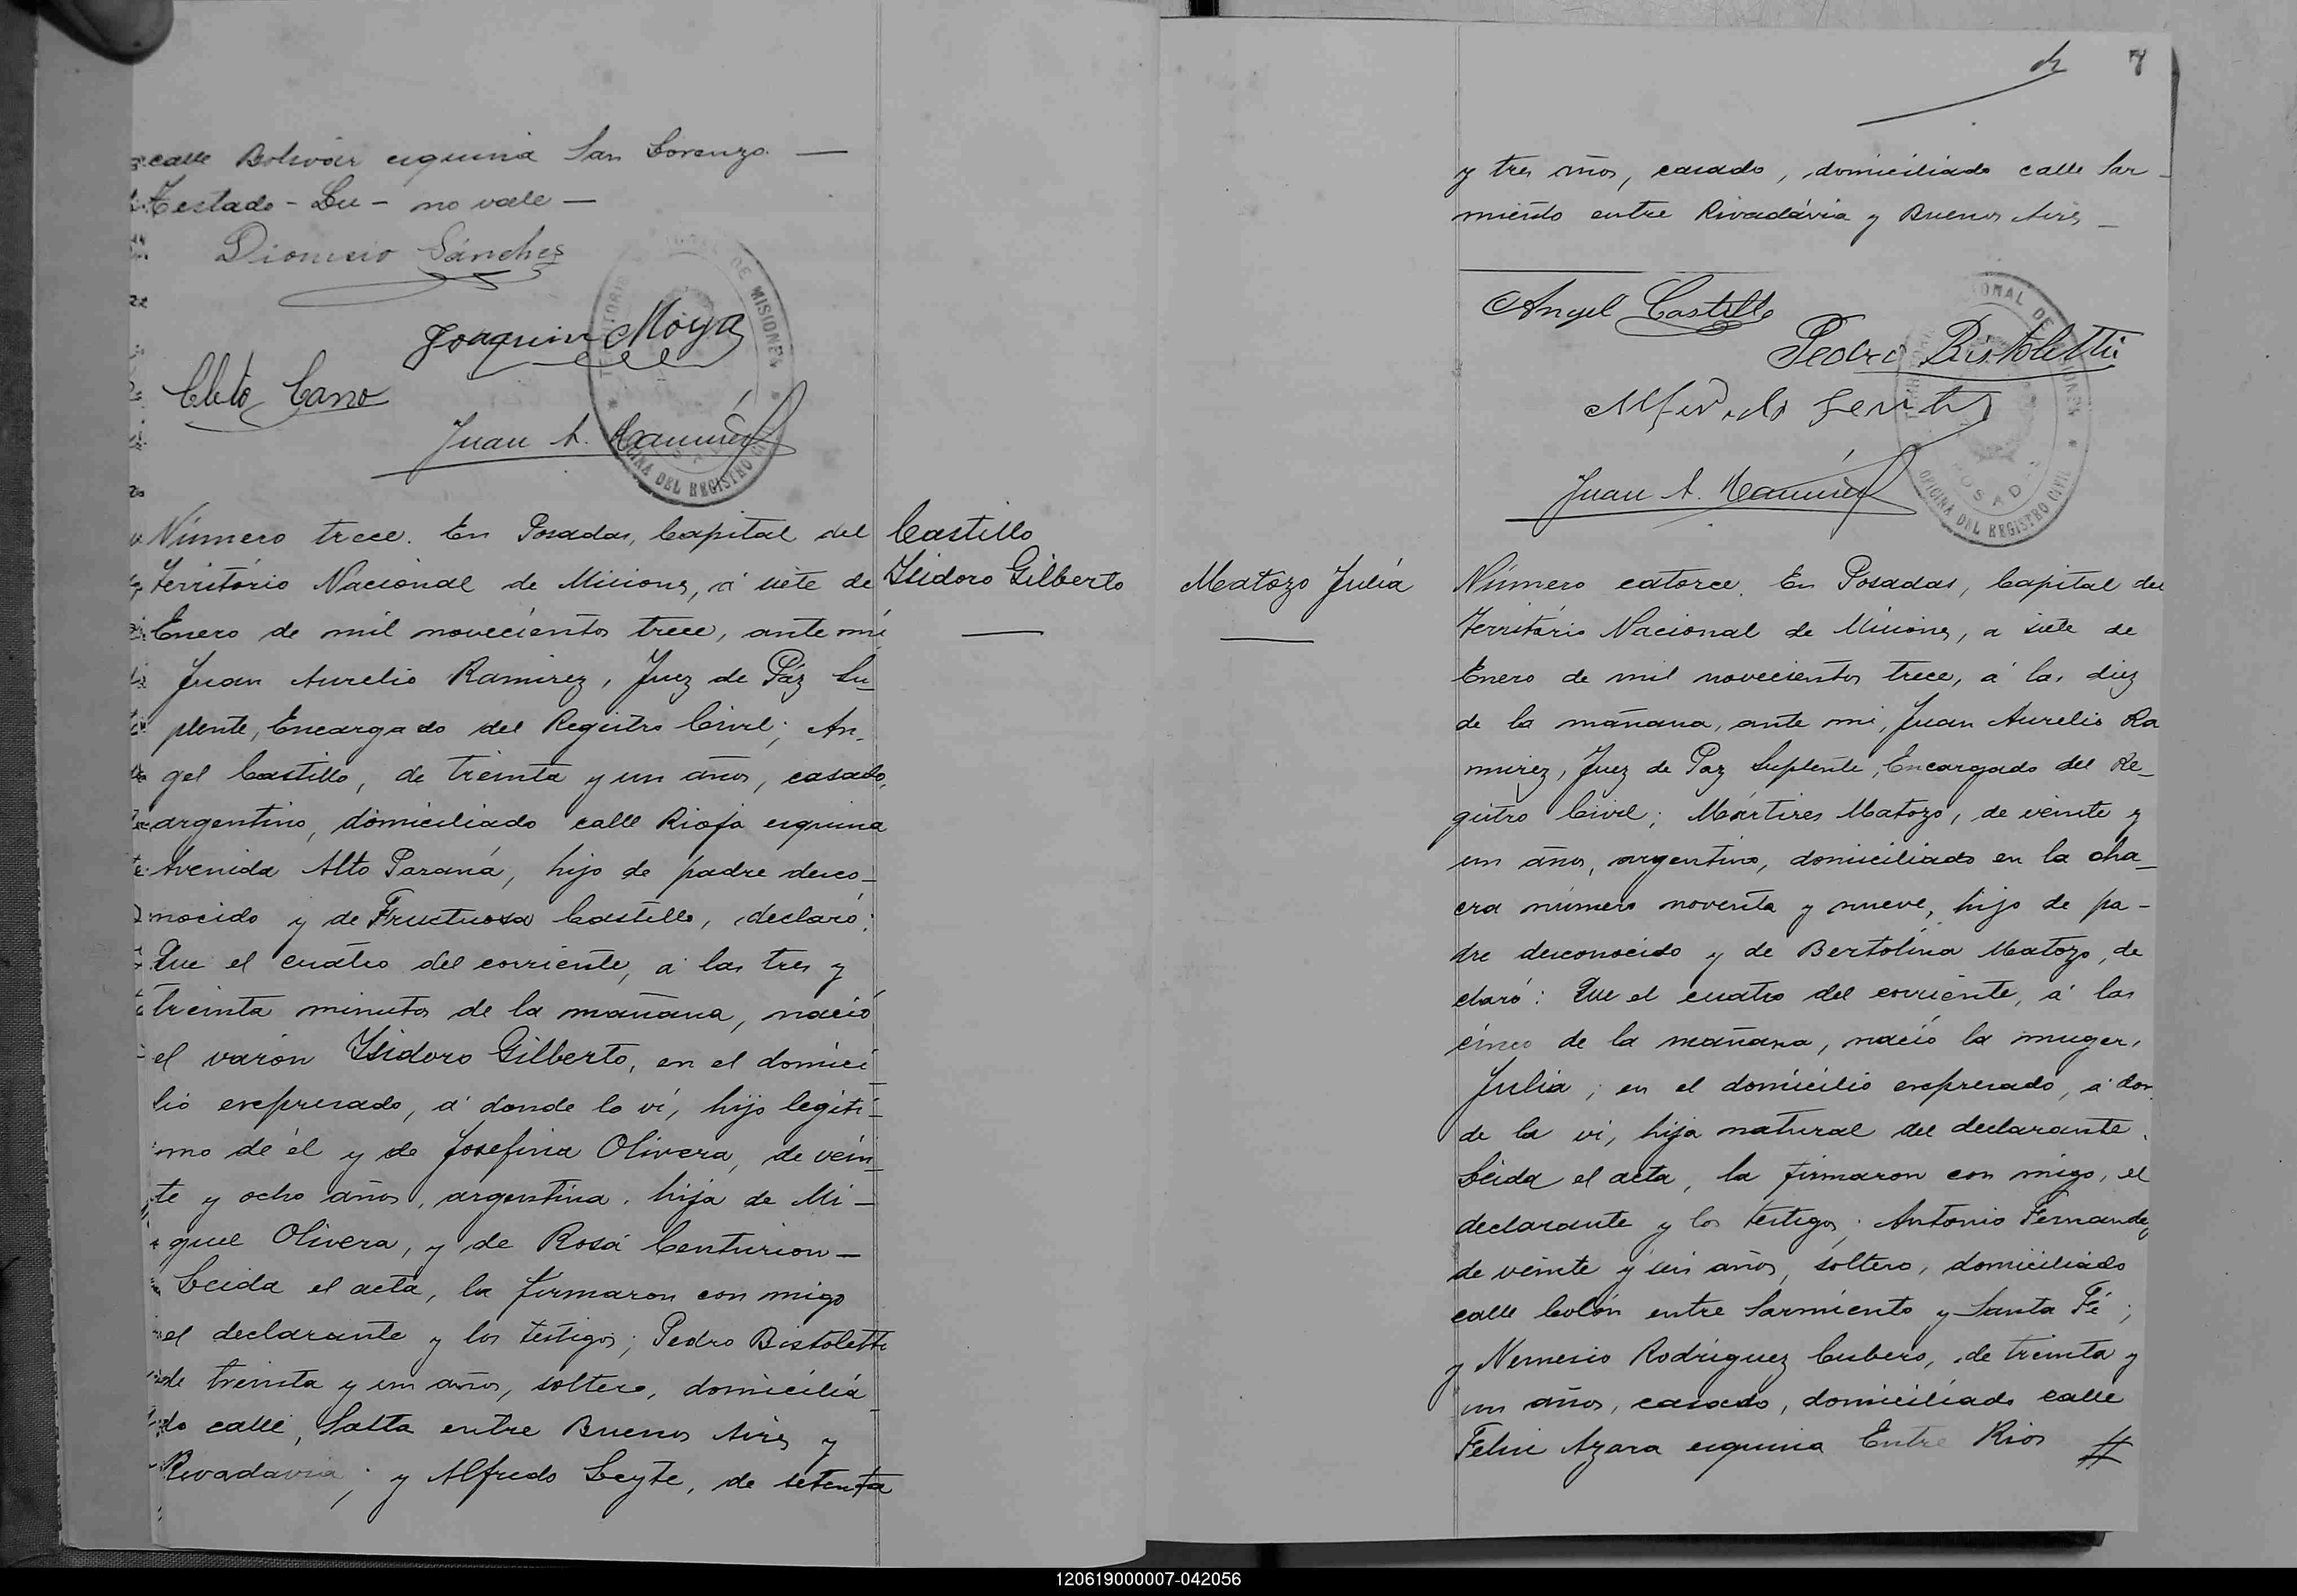 calle Bolivar esquina San Lorenzo —
Testado - Lu - no vale —
Dionisio Sánches
Joaquin Moya
Cleto Cano
Juan A. Ramirez
TERRITORIO NACIONAL DE MISIONES
OFICINA DEL REGISTRO CIVIL
Castillo
Isidoro Gilberto
Número trece. En Posadas, Capital del
Territorio Nacional de Misiones, á siete de
Enero de mil novecientos trece, ante mi
Juan Aurelio Ramirez, Juez de Páz Su-
plente, Encargado del Registro Civil; An-
gel Castillo, de treinta y un años, casado,
argentino, domiciliado calle Rioja esquina
Avenida Alto Paraná, hijo de padre desco-
nocido y de Fructuosa Castillo, declaró:
Que el cuatro del corriente, á las tres y
treinta minutos de la mañana, nació
el varón Isidoro Gilberto, en el domici-
lio expresado, á donde lo ví, hijo legíti-
mo de él y de Josefina Olivera, de vein-
te y ocho años, argentina, hija de Mi-
guel Olivera, y de Rosa Centurion —
Leida el acta, la firmaron con migo
el declarante y los testigos; Pedro Bistoletti
de treinta y un años, soltero, domicilia-
do calle, Salta entre Buenos Aires y
Rivadavia; y Alfredo Leyte, de setenta
7
y tres años, casado, domiciliado calle Sar-
miento entre Rivadávia y Buenos Aires —
Angel Castillo
Pedro Bistoletti
Juan A. Ramirez
NACIONAL DE MISIONES
POSADAS
OFICINA DEL REGISTRO CIVIL
Matozo Julia
Número catorce. En Posadas, Capital del
Territorio Nacional de Misiones, a siete de
Enero de mil novecientos trece, á las diez
de la mañana, ante mi, Juan Aurelio Ra
mirez, Juez de Paz Suplente, Encargado del Re-
gistro Civil; Mártires Matozo, de veinte y
un años, argentino, domiciliado en la cha-
cra número noventa y nueve, hijo de pa-
dre desconocido y de Bertolina Matozo, de
claró: Que el cuatro del corriente, á las
cinco de la mañana, nació la muger,
Julia; en el domicilio expresado, a don
de la ví, hija natural del declarante.
Leida el acta, la firmaron con migo, el
declarante y los testigos; Antonio Fernandez
de veinte y seis años, soltero, domiciliado
calle Colón entre Sarmiento y Santa Fé;
y Nemesio Rodriguez Cubero, de treinta y
un años, casado, domiciliado calle
Felix Azara esquina Entre Rios #
120619000007-042056